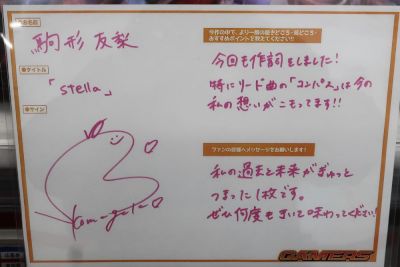 ●お名前
駒形 友梨
●タイトル
「stella」
●サイン
Komagata
今作の中で、より一層の聴きどころ・見どころ・
おすすめポイントを教えてください!!
今回も作詞をしました!
特にリード曲の「コンパス」は今の
私の想いがこもってます!!
ファンの皆様へメッセージをお願いします!
私の過去と未来がぎゅっと
つまった1枚です。
ぜひ何度もきいて味わってください!
GAMERS